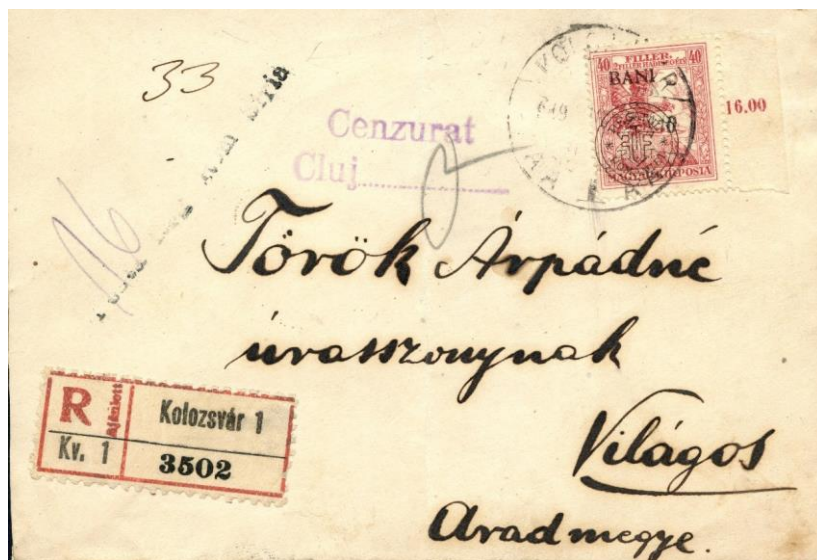 33
Cenzurat
Cluj
16
40 FILLER 40
BANI
16.00
Török Árpádné
úrasszonynak
Világos
Aradmegye.
R
Ajánlott
Kolozsvár 1
Kv. 1
3502